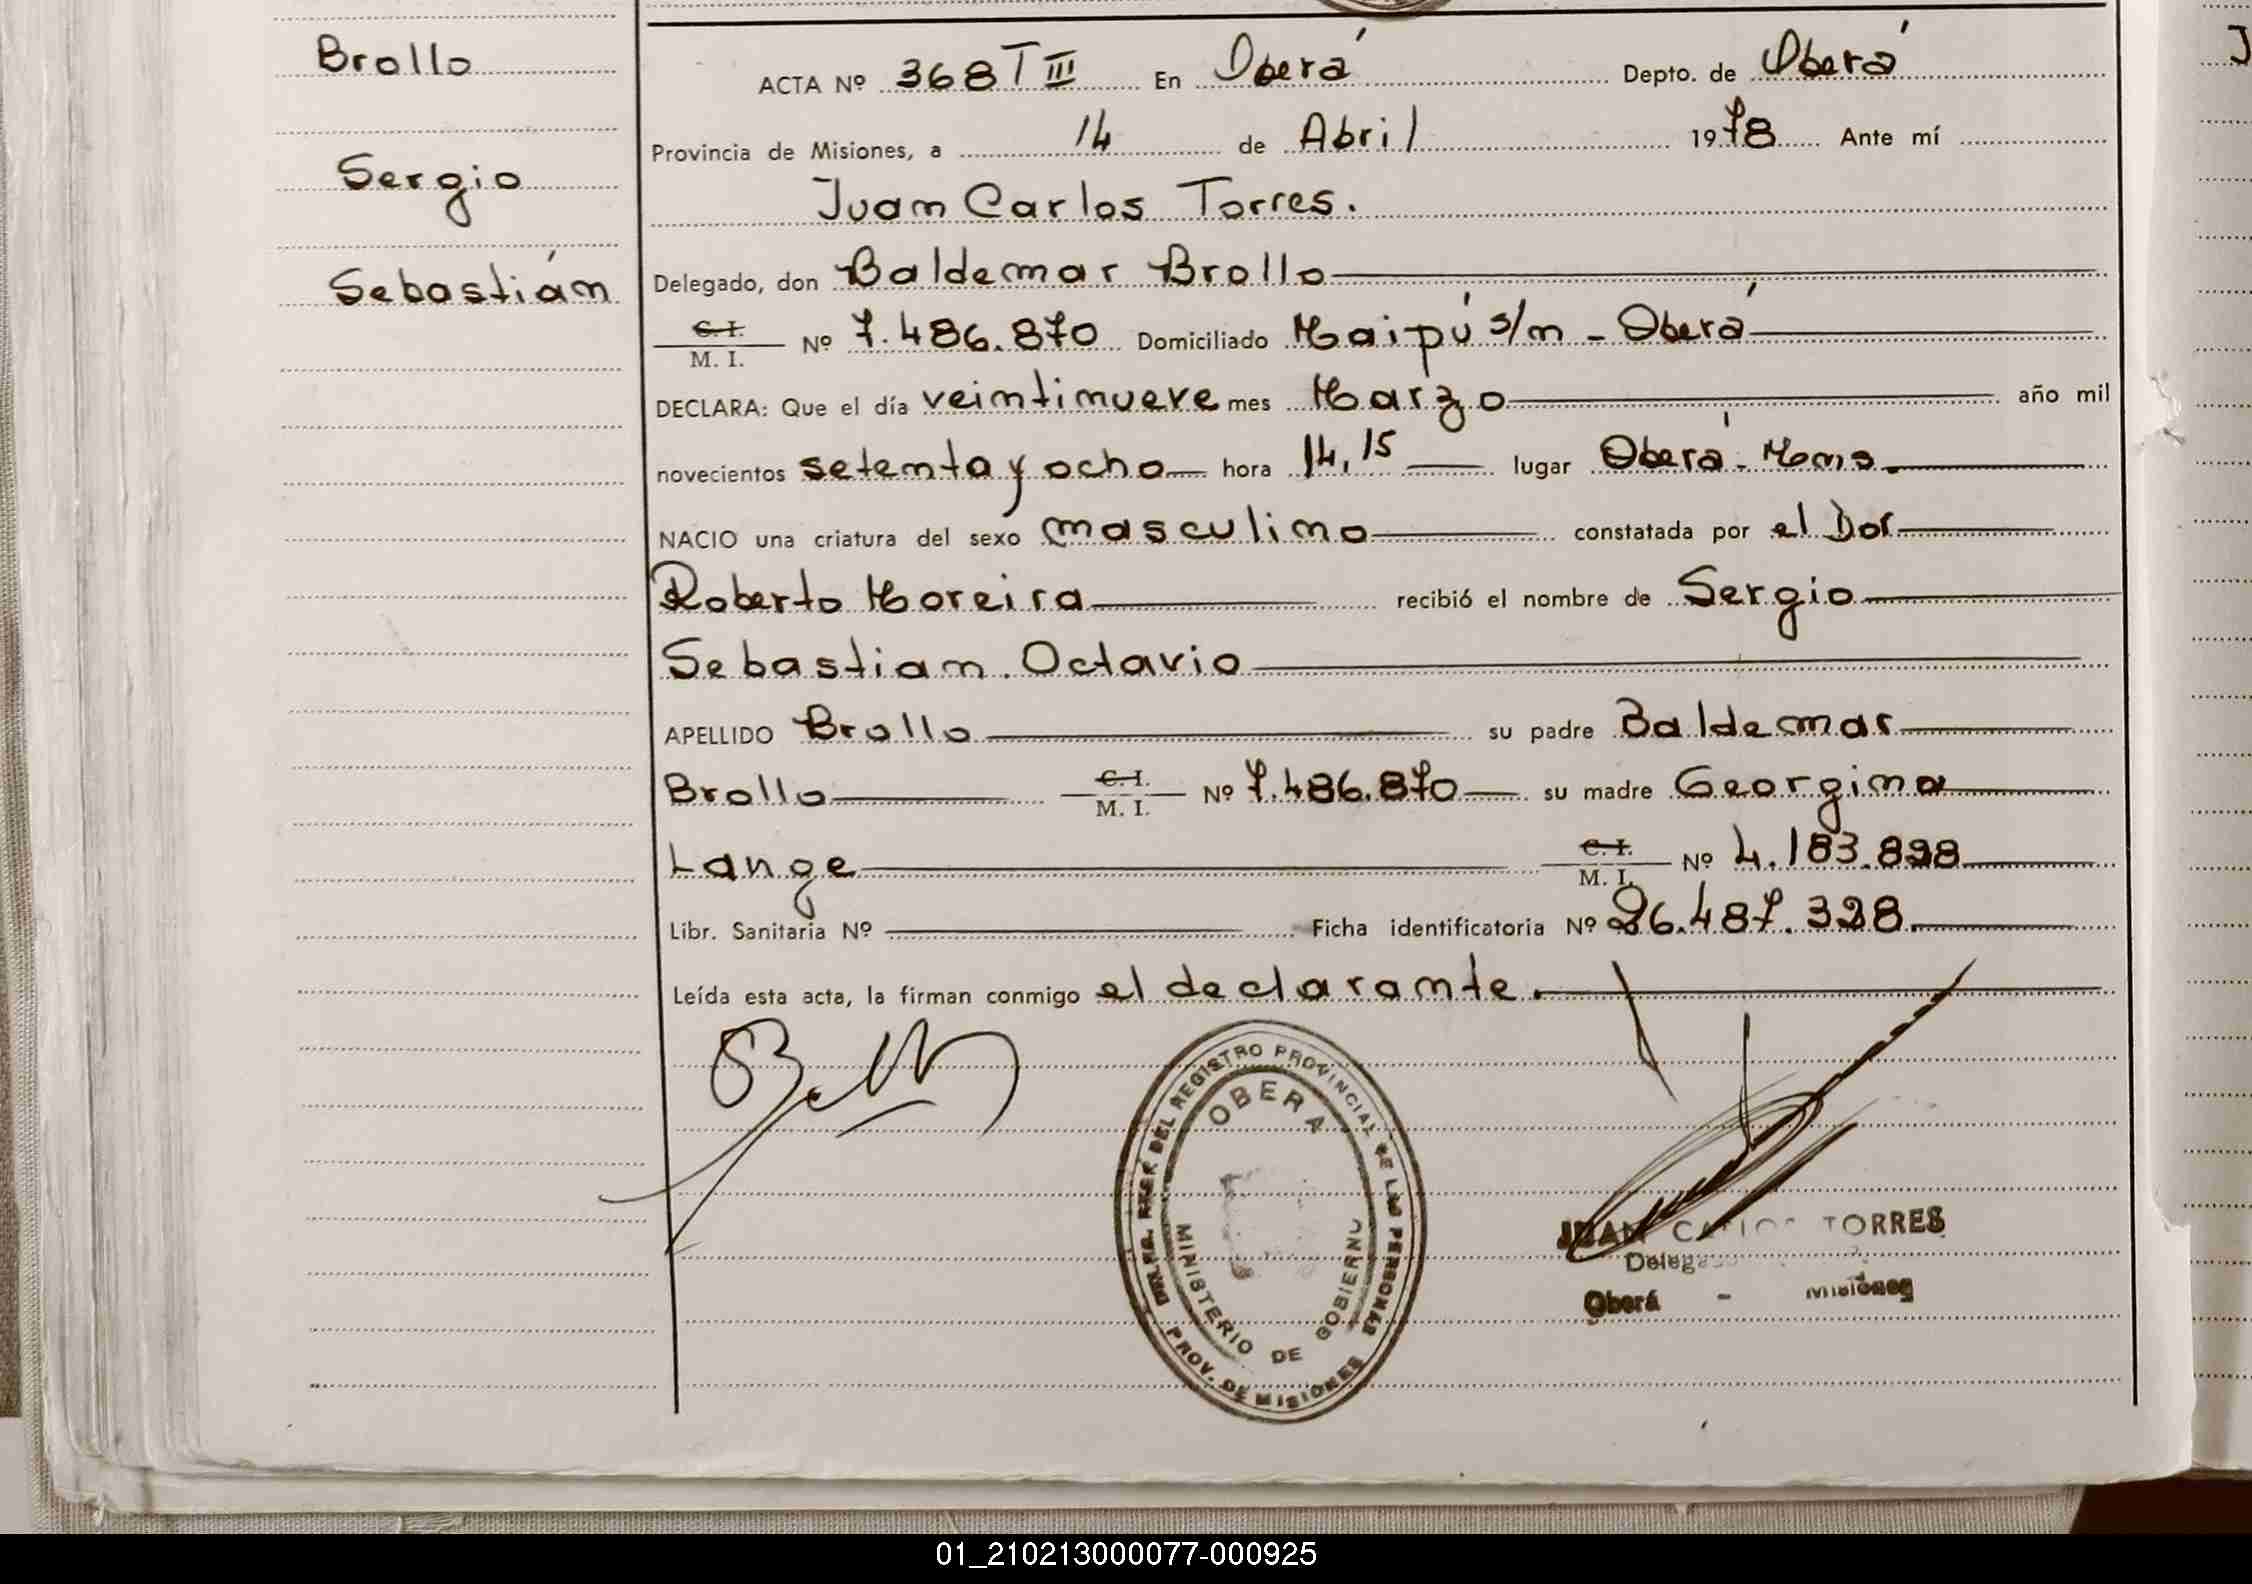 Brollo
Sergio
Sebastián
ACTA Nº 368 T III En Oberá Depto. de Oberá
Provincia de Misiones, a 14 de Abril 1978 Ante mí
Juan Carlos Torres.
Delegado, don Baldemar Brollo
C. I.
M. I. Nº 7.486.870 Domiciliado Maipú s/n - Oberá
DECLARA: Que el día veintinueve mes Marzo año mil
novecientos setenta y ocho hora 14,15 lugar Oberá - Mnes.
NACIO una criatura del sexo masculino constatada por el Dor
Roberto Moreira recibió el nombre de Sergio
Sebastian Octavio
APELLIDO Brollo su padre Baldemar
Brollo C. I. M. I. Nº 7.486.870 su madre Georgina
Lange C. I. M. I. Nº 4.183.898
Libr. Sanitaria Nº Ficha identificatoria Nº 26.487.328.
Leída esta acta, la firman conmigo el declarante.
DEL REGISTRO PROVINCIAL DE LAS PERSONAS
OBERA
MINISTERIO DE GOBIERNO
PROV. DE MISIONES
JUAN CARLOS TORRES
Oberá - Misiones
01_210213000077-000925